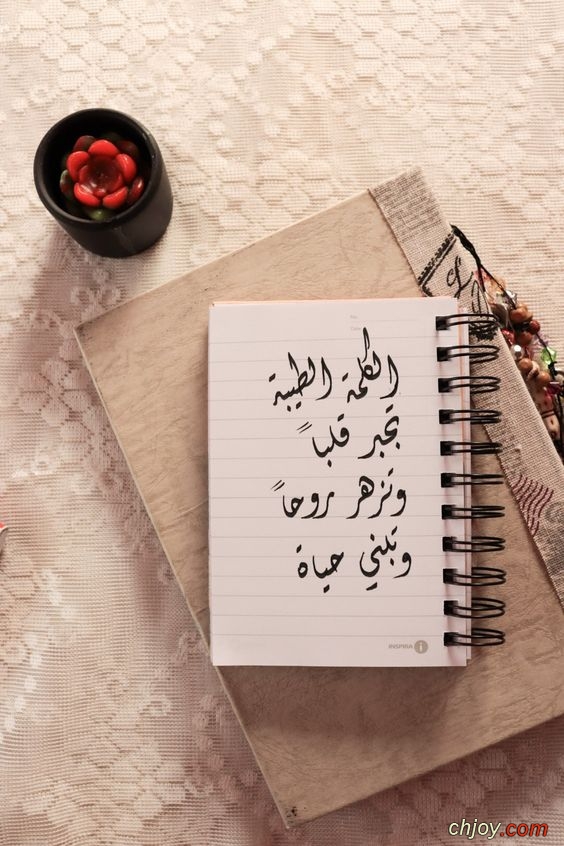 No:
Date:
الكلمة الطيبة
تجبر قلباً
وتزهر روحاً
وتبني حياة
INSPIRA i
chjoy.com